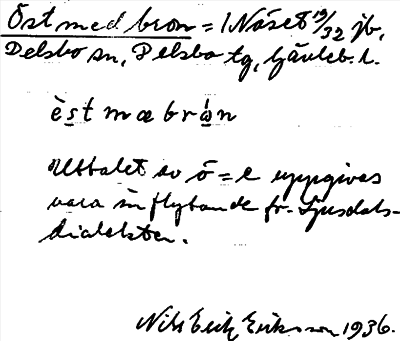 Öst med bron = 1 Näset 19/32 jb,
Delsbo sn, Delsbo tg, Gävleb. l.
èst mæ brón
Uttalet av ö = e uppgives
vara in flytande fr. Ljusdals-
dialekten.
Nils Erik Eriksson 1936.